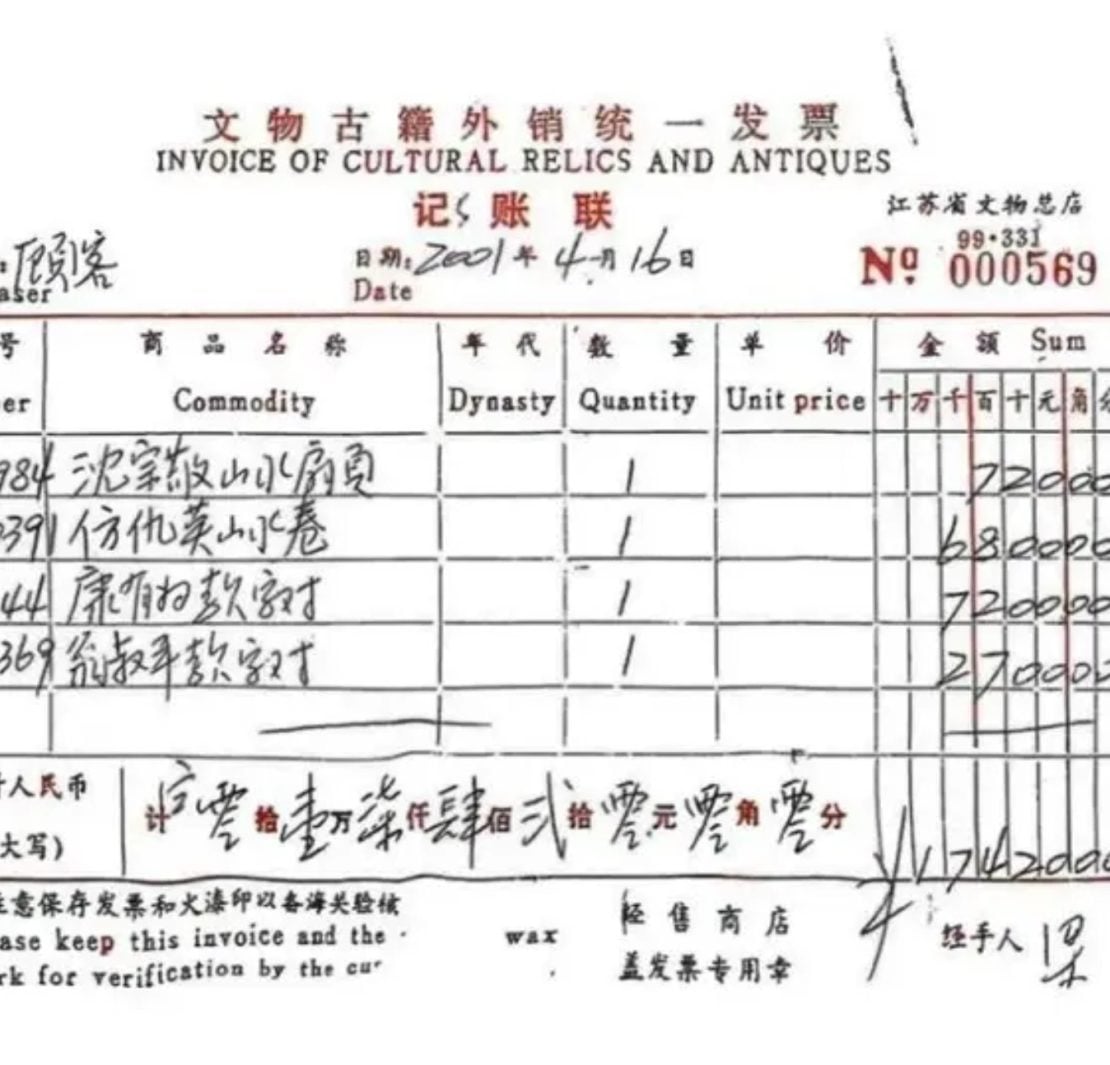 文物古籍外销统一发票
INVOICE OF CULTURAL RELICS AND ANTIQUES
记账联
江苏省文物总店
99·331
№ 000569
顾客
aser
日期: 2001年4月16日
Date
号 商品名称 年代 数量 单价 金额 Sum
er Commodity Dynasty Quantity Unit price 十万千百十元角分
984 沈宗敬山水扇页 1 72000
391 仿仇英山水卷 1 680000
44 康有为款字对 1 720000
369 翁叔平款字对 1 270000
人民币
大写)
计 零拾壹万柒仟肆佰贰拾零元零角零分
1742000
注意保存发票和火漆印以备海关验核
ase keep this invoice and the wax
rk for verification by the cu
经售商店
盖发票专用章
经手人 梁